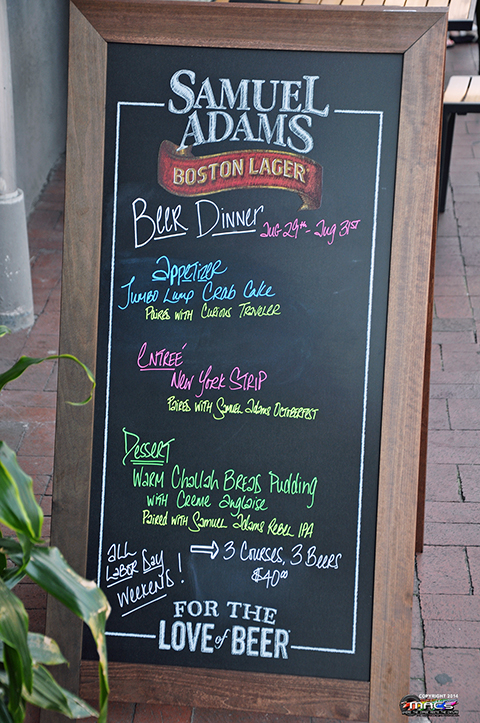 SAMUEL
ADAMS
BOSTON LAGER
Beer Dinner
Aug 29th - Aug 31st
Appetizer
Jumbo Lump Crab Cake
Paired with Curious Traveler
Entreé
New York Strip
Paired with Samuel Adams Octoberfest
Dessert
Warm Challah Bread Pudding
with Creme anglaise
Paired with Samuel Adams Rebel IPA
All
Labor Day
Weekend!
⇨ 3 Courses, 3 Beers
$40.00
FOR THE
LOVE of BEER
COPYRIGHT 2014